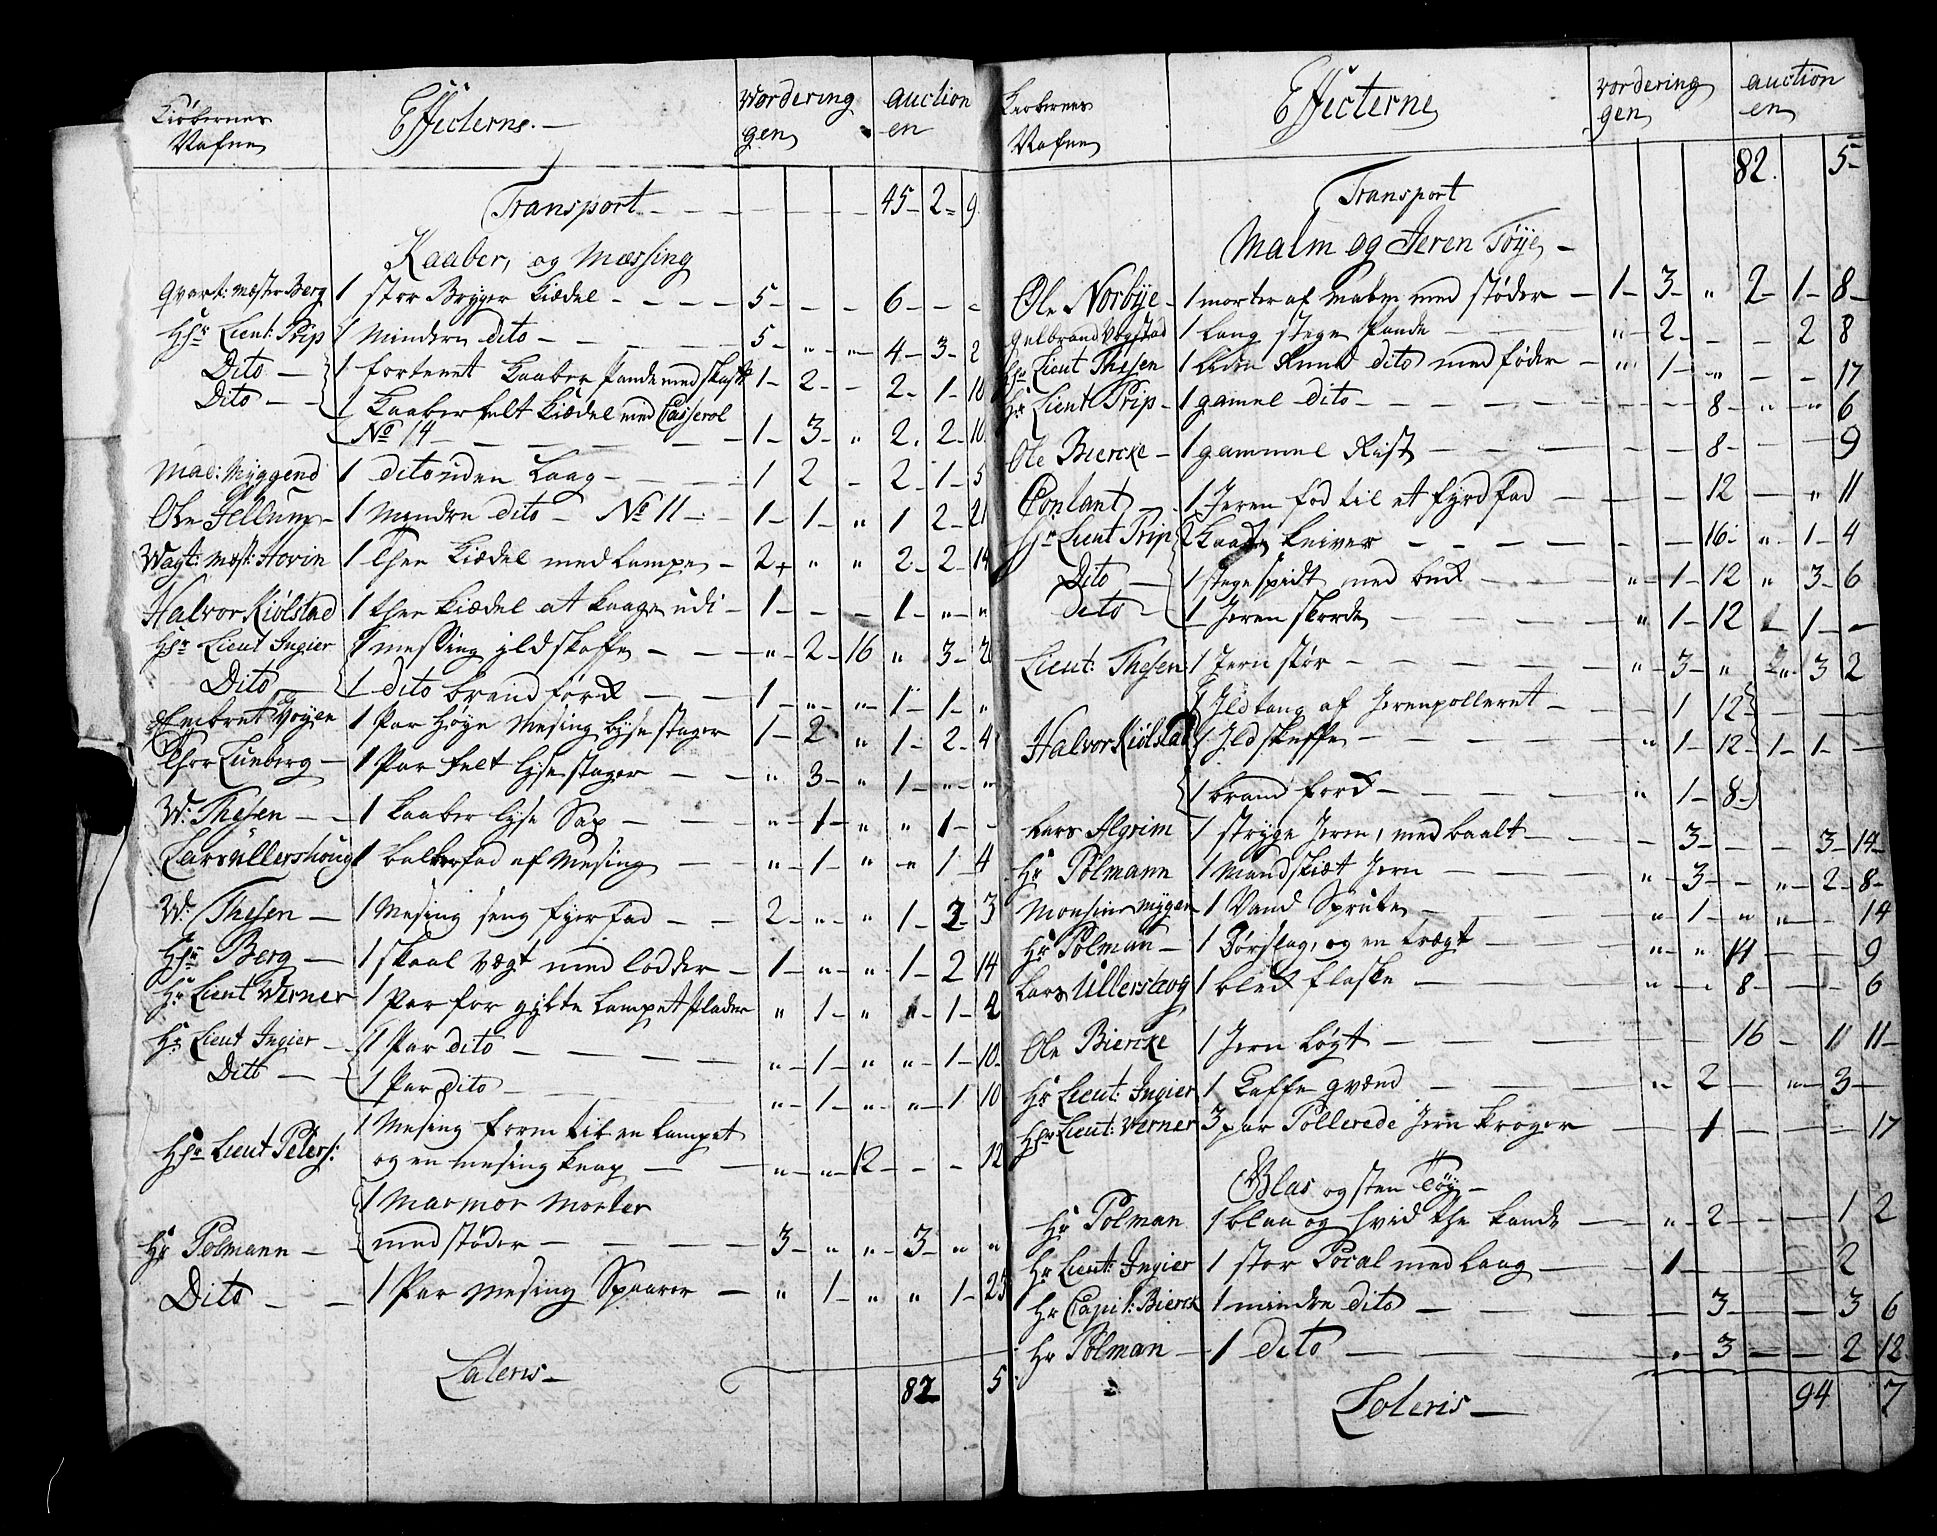 Kiøbernes Nafne Effecterne. — Vordering gen auction en
Transport — — — — 45 — 2 — 9
Kaaber, og Messing
Qvart: Mester Berg 1 stor Brygger Kiedel — — — 5 — — — 6 — — —
Hr Lieut: Prip 1 Mindere dito — — — 5 — „ — „ 4 — 3 — 2
Dito — 1 fortenet Kaaber Pande med skaft 1 — 2 — — 2 — 1 — 10
Dito — — 1 Kaaber felt Kiedel med Casserol
No 14 — — — 1 — 3 — „ 2 — 2 — 10
Mad: Myggend 1 dito uden Laag — — 1 2 — 2 — 1 — 5
Ole Jellum — 1 Mindre dito — No 11 — 1 — 1 — „ 1 2 — 21
Wagt: mest: Hovin 1 Thee Kiedel med Lampe — 2 „ „ 2 — 2 — 14
Halvor Kiølstad 1 thee Kiedel at kaage udi — 1 — — — 1 — „ — „
Hr Lieut Ingier 1 messing ild skoffe — — — „ — 2 — 16 „ 3 — 2
Dito — 1 dito brand fork — — 1 — „ — „ — 1 — 1 — „
Embret Woyen 1 Par Høye Mesing lyse stager 1 — 2 „ 1 — 2 — 4
Thor Lunberg — 1 Par felt lyse stager — — „ — 3 — „ 1 — „ — „
W: Thesen — — 1 Kaaber lyse Sax — — „ — 1 — „ „ 1 — —
Lars Ullershoug 1 balberfad af Mesing — — „ — 1 — „ „ 1 — 4
W: Thesen — 1 Mesing seng fyrfad — — 2 — „ — „ 1 — 2 — 3
Hr Berg — 1 skaal vægt med lodder — 1 — „ — „ — 1 — 2 14
Hr Lieut Werner 1 Par for gylte Lampet Plader „ 1 — „ „ — 1 — 2
Hr Lieut Ingier — 1 Par dito — — — „ — 1 — „ „ — 1 — 10
Dito — — 1 Par dito — — — „ — 1 — „ — „ — 1 10
1 Mesing form til en Lampet
Hr Lieut Peters: og en mesing knap — — „ — „ — 12 — — — 12
1 Marmor Morter
Hr Polmann — — med støder — — — 3 — „ „ — 3 — „ „
Dito — — 1 Par Mesing Spaarer — „ 1 — „ „ 1 — 23
Lateris — 82 5
Kiøbernes Nafne Effecterne Vordering gen auction en
Transport 82. 5 —
Malm og Jeren Tøye —
Ole Norbye — 1 morter af malm med støder — 1 — 3 — „ 2 — 1 — 8 —
Gulbrand Wogstad 1 Lang stege Pande — — — „ — 2 — — — 2 8
Hr Lieut Thesen 1 Liden Rund dito med føder — „ 1 — „ — — — 17
Hr Lieut Prip — 1 gamel dito — — — 8 — „ — „ 6
Ole Biercke — 1 gammel Rist — — — 8 — — — 9
Conlant — 1 Jeren fod til et fyrfad — — — 12 — „ 11
Hr Lieut Prip 2 knive — — — 16 — „ — 1 — 4
Dito — 1 stegespidt med buk — — „ — 1 — 12 „ 3 — 6
Dito — 1 Jeren skorde — — — „ 1 — 12 1 — —
Lieut: Thesen 1 Jern stør — — — „ — 3 — „ 3 2
1 Ildtang af Jerenpolleret — — 1 12 — — —
Halvor Kiølstad 1 Ildskuffe — — — „ 1 — 12 — 1 — 1 — —
1 brand fork — — — „ 1 — 8 —
Lars Algrim 1 stryge Jern, med baalt — — — 3 — — — 3 — 14 —
Hr Polmann 1 Mandskiæt Jern — — — „ — 3 — — „ — 2 — 8 —
Monsieur mygen 1 Vand Sprute — — — „ 1 — „ „ — — 14
Hr Polman — 1 Dørslag, og en tragt — — „ — „ 14 — — 9
Lars Ullershoug 1 blik flaske — — — „ — „ 8 — — — 6
Ole Biercke 1 Jern Løgt — — — 16 — 11 11 —
Hr Lieut: Ingier 1 Caffe qværn — — — „ — 2 — „ — 3 —
Hr Lieut: Werner 3 par Pollerede Jern kroger — — 1 — — — 17
Glas og sten Tøy —
Hr Polman 1 blaa og hvid The kande — — „ — 2 — — — 1 2
Hr Lieut: Ingier 1 stor Pocal med Laag — — 1 — — — 2
Hr Capit: Bierck 1 mindre dito — — — 3 — — — 3 6
Hr Polman — 1 dito — — — 3 — — — 2 12
Lateris — 94 7